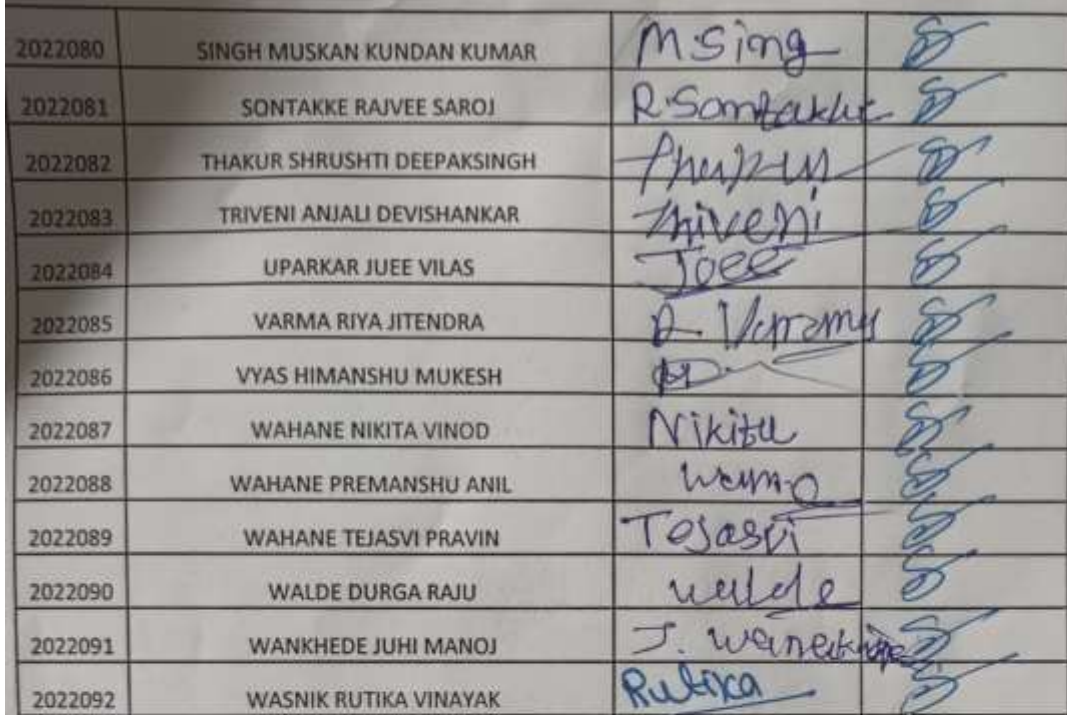 2022080 SINGH MUSKAN KUNDAN KUMAR M Sing
2022081 SONTAKKE RAJVEE SAROJ R. Sontakke
2022082 THAKUR SHRUSHTI DEEPAKSINGH
2022083 TRIVENI ANJALI DEVISHANKAR Triveni
2022084 UPARKAR JUEE VILAS Joee
2022085 VARMA RIYA JITENDRA R.
2022086 VYAS HIMANSHU MUKESH
2022087 WAHANE NIKITA VINOD Nikita
2022088 WAHANE PREMANSHU ANIL
2022089 WAHANE TEJASVI PRAVIN Tejasvi
2022090 WALDE DURGA RAJU walde
2022091 WANKHEDE JUHI MANOJ J.
2022092 WASNIK RUTIKA VINAYAK Rutika